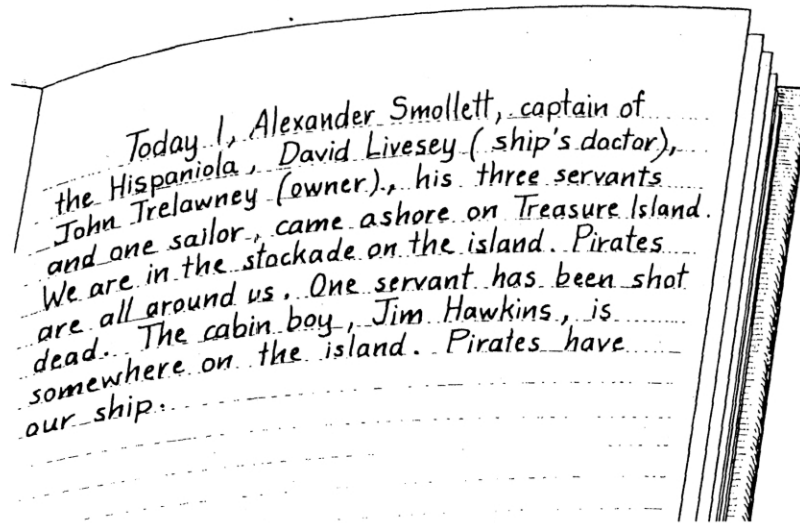 Today I, Alexander Smollett, captain of
the Hispaniola, David Livesey (ship's doctor),
John Trelawney (owner), his three servants
and one sailor, came ashore on Treasure Island.
We are in the stockade on the island. Pirates
are all around us. One servant has been shot
dead. The cabin boy, Jim Hawkins, is
somewhere on the island. Pirates have
our ship.